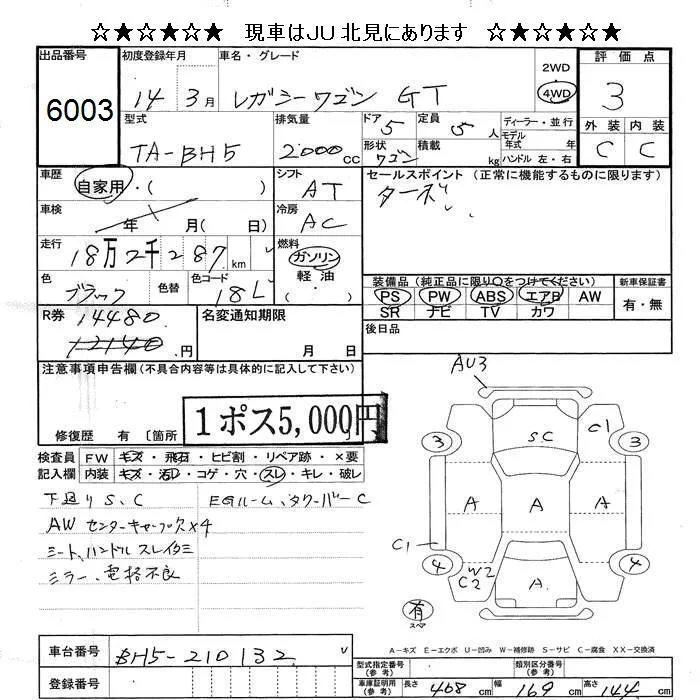 ☆★☆★☆ 現車はJU北見にあります ☆★☆★☆
出品番号 初度登録年月 車名・グレード 評価点
6003 14年3月 レガシーワゴン GT 2WD 4WD 3
型式 排気量 ドア 5 定員 5人 ディーラー・並行 外装 内装
モデル年式 年
TA-BH5 2000cc 形状 ワゴン 積載 kg ハンドル 左・右 C C
車歴 自家用・( ) シフト AT セールスポイント (正常に機能するものに限ります)
ターボ
車検 年 月( 日) 冷房 AC
走行 18万2千287km 燃料 ガソリン 軽油 ・( )
装備品 (純正品に限り○をつけてください) 新車保証書
色 ブラック 色替 色コード 18L
PS PW ABS エアB AW 有・無
SR ナビ TV カワ
R券 14480 12140円 名変通知期限 月 日 後日品
注意事項申告欄 (不具合内容等は具体的に記入して下さい)
1ポス5,000円
修復歴 有 〔箇所
AU3
検査員記入欄 FW キズ・飛石・ヒビ割・リペア跡・×要
内装 キズ・汚レ・コゲ・穴・スレ・キレ・破レ
下廻りS、C EGルーム、タワーバーC
AWセンターキャップ欠×4
シート、ハンドルスレイタミ
ミラー、電格不良
SC C1
3 3
A A A
C1
4 W2 C2 A 4
有 スペア
A-キズ E-エクボ U-凹み W-補修跡 S-サビ C-腐食 XX-交換済
車台番号 BH5-210132
型式指定番号 (参考) 類別区分番号 (参考)
登録番号
車庫証明用 (参考) 長さ 468cm 幅 169cm 高さ 144cm